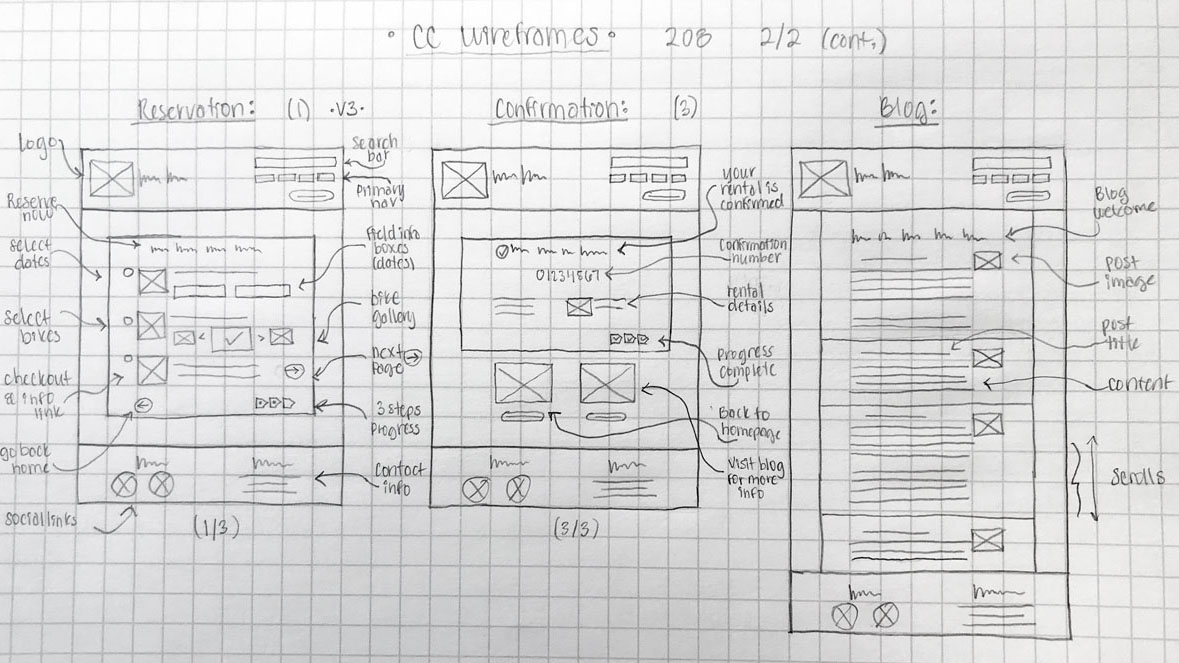 • CC Wireframes • 208 2/2 (cont.)
Reservation: (1) •V3•
Logo
search
bar
primary
nav
Reserve
now
select
dates
field info
boxes
(dates)
select
bikes
bike
gallery
next
page
checkout
& info
link
3 steps
progress
go back
home
contact
info
social links
(1/3)
Confirmation: (3)
your
rental is
confirmed
confirmation
number
01234567
rental
details
progress
complete
Back to
homepage
visit blog
for more
info
(3/3)
Blog:
Blog
welcome
post
image
post
title
content
scrolls